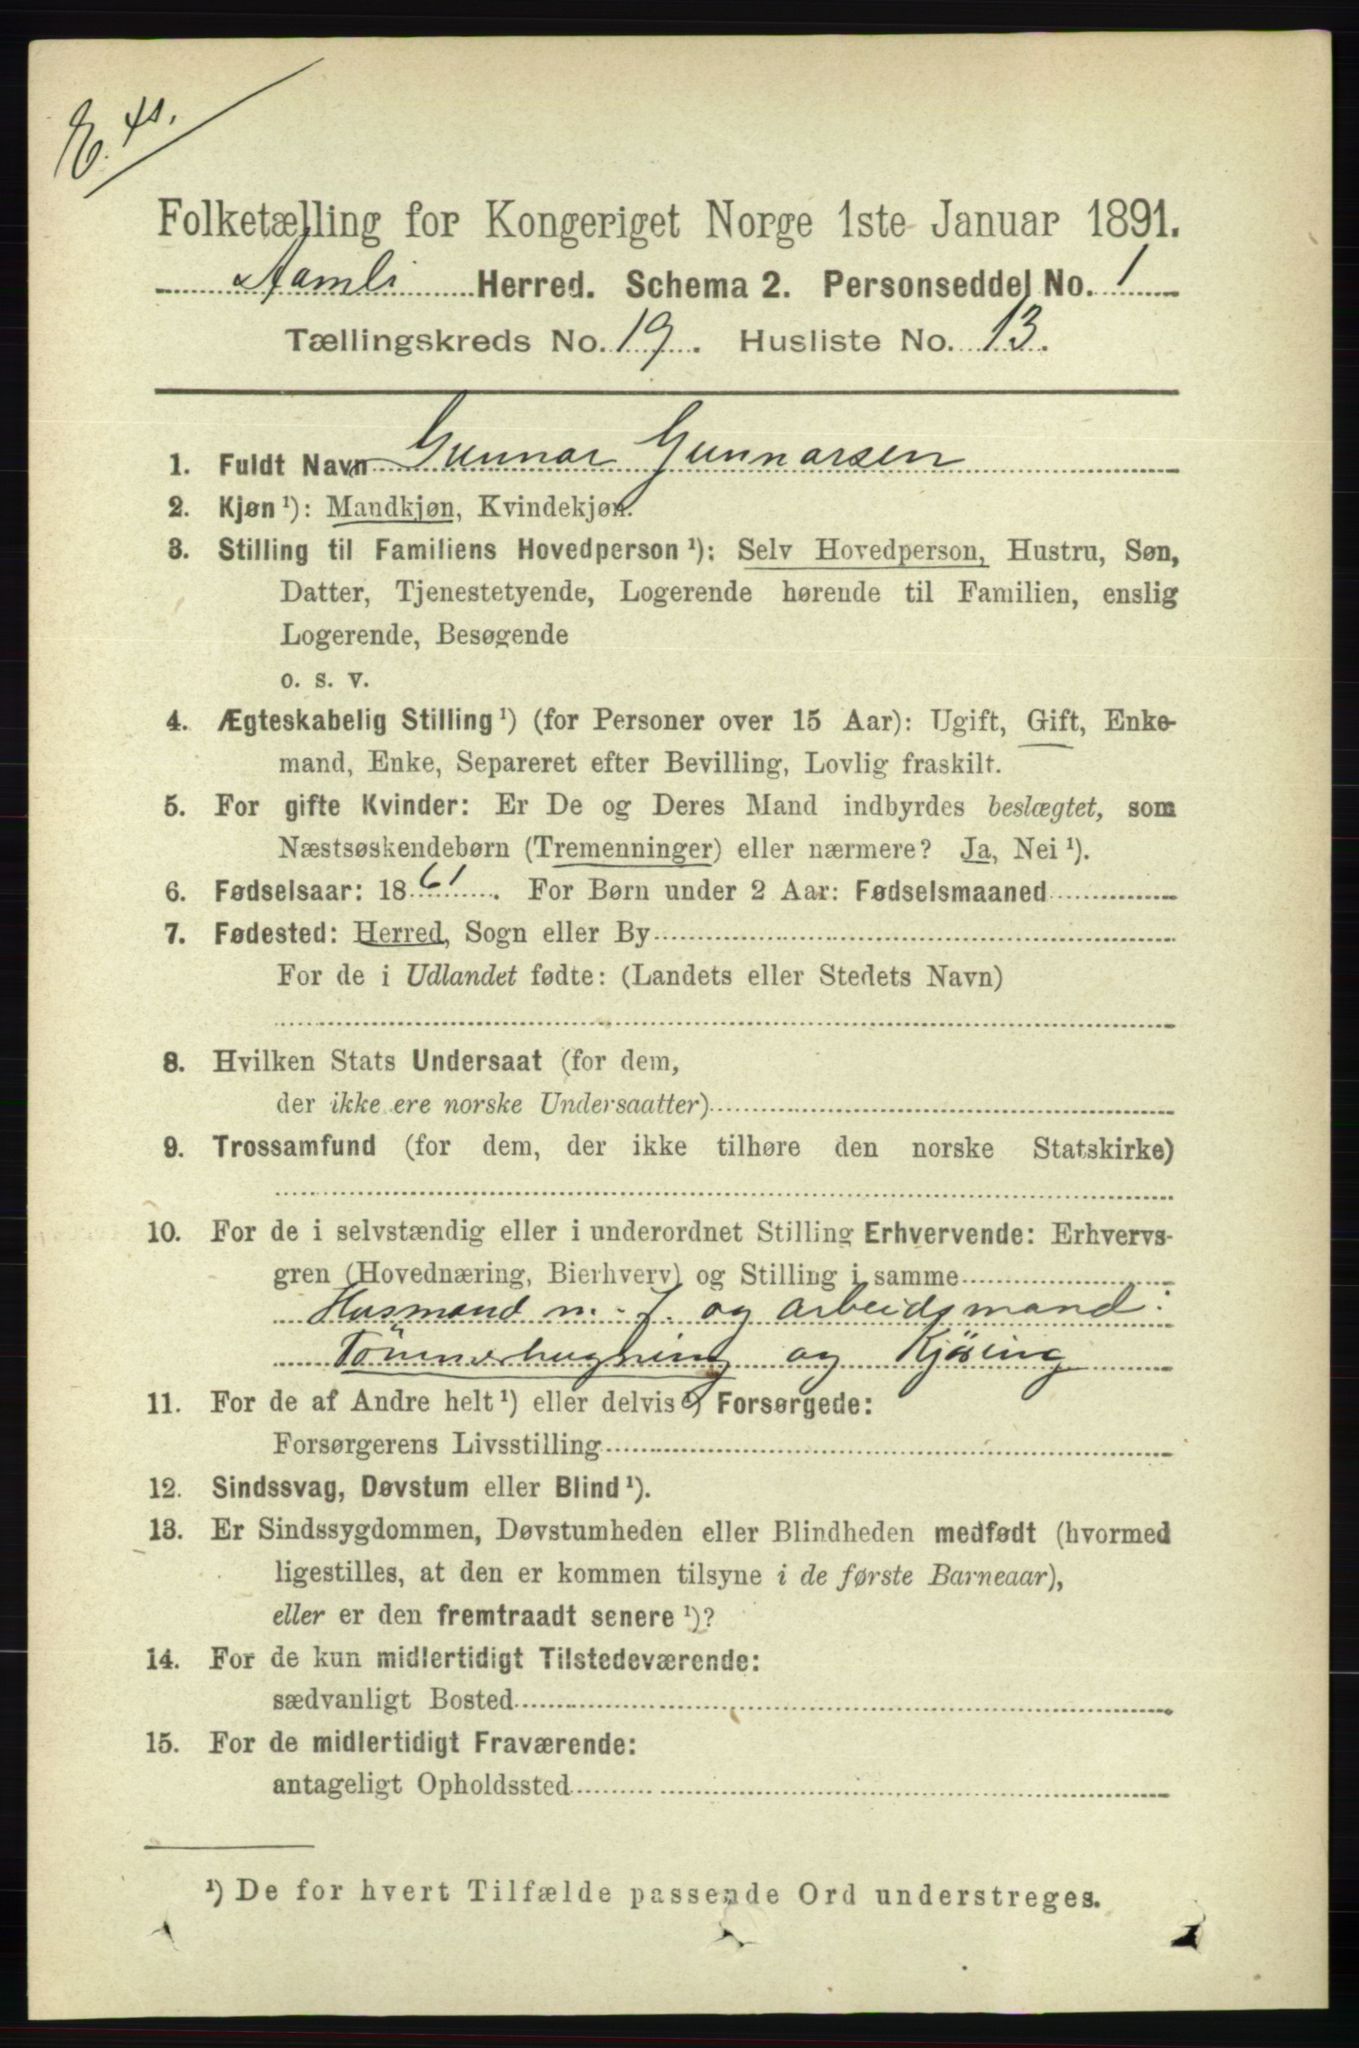 E. 41.
Folketælling for Kongeriget Norge 1ste Januar 1891.
Aamli Herred. Schema 2. Personseddel No. 1
Tællingskreds No. 19. Husliste No. 13.
1. Fuldt Navn Gunnar Gunnarsen
2. Kjøn ¹): Mandkjøn, Kvindekjøn.
3. Stilling til Familiens Hovedperson ¹): Selv Hovedperson, Hustru, Søn,
Datter, Tjenestetyende, Logerende hørende til Familien, enslig
Logerende, Besøgende
o. s. v.
4. Ægteskabelig Stilling ¹) (for Personer over 15 Aar): Ugift, Gift, Enke-
mand, Enke, Separeret efter Bevilling, Lovlig fraskilt.
5. For gifte Kvinder: Er De og Deres Mand indbyrdes beslægtet, som
Næstsøskendebørn (Tremenninger) eller nærmere? Ja, Nei ¹).
6. Fødselsaar: 1861. For Børn under 2 Aar: Fødselsmaaned
7. Fødested: Herred, Sogn eller By
For de i Udlandet fødte: (Landets eller Stedets Navn)
8. Hvilken Stats Undersaat (for dem,
der ikke ere norske Undersaatter)
9. Trossamfund (for dem, der ikke tilhøre den norske Statskirke)
10. For de i selvstændig eller i underordnet Stilling Erhvervende: Erhvervs-
gren (Hovednæring, Bierhverv) og Stilling i samme
Husmand m. J. og arbeidsmand:
Tømmerhugning og Kjøring
11. For de af Andre helt ¹) eller delvis ¹) Forsørgede:
Forsørgerens Livsstilling
12. Sindssvag, Døvstum eller Blind ¹).
13. Er Sindssygdommen, Døvstumheden eller Blindheden medfødt (hvormed
ligestilles, at den er kommen tilsyne i de første Barneaar),
eller er den fremtraadt senere ¹)?
14. For de kun midlertidigt Tilstedeværende:
sædvanligt Bosted
15. For de midlertidigt Fraværende:
antageligt Opholdssted
¹) De for hvert Tilfælde passende Ord understreges.